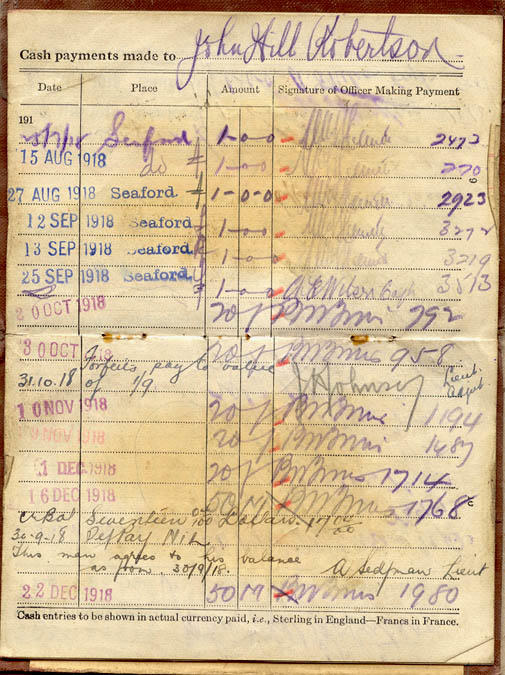 Cash payments made to John Hill Robertson
Date Place Amount Signature of Officer Making Payment
191
Seaford 1-0-0 2473
15 AUG 1918 do 1-0-0 270
27 AUG 1918 Seaford. 1-0-0 2923
12 SEP 1918 Seaford. 1-0-0 3272
13 SEP 1918 Seaford. 1-0-0 3219
25 SEP 1918 Seaford. 1-0-0 3513
20 OCT 1918 20 f 792
30 OCT 20 f 958
Forfeits pay to value Lieut.
31.10.18 of 1/9
10 NOV 1918 20 f 1194
NOV 1918 20 f 1487
1 DEC. 1918 20 f 1714
16 DEC 1918 50 M 1768
Cr Bal Seventeen 00/100 Dollars. 17 00/00
30-9-18 Def Pay Nil
This man agrees to his balance
as from 30/9/18. A Sedgman Lieut
22 DEC 1918 50 M 1980
Cash entries to be shown in actual currency paid, i.e., Sterling in England—Francs in France.